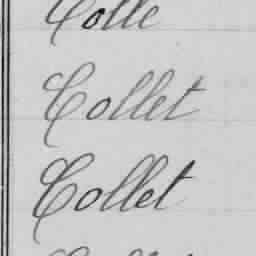 Colle
Collet
Collet